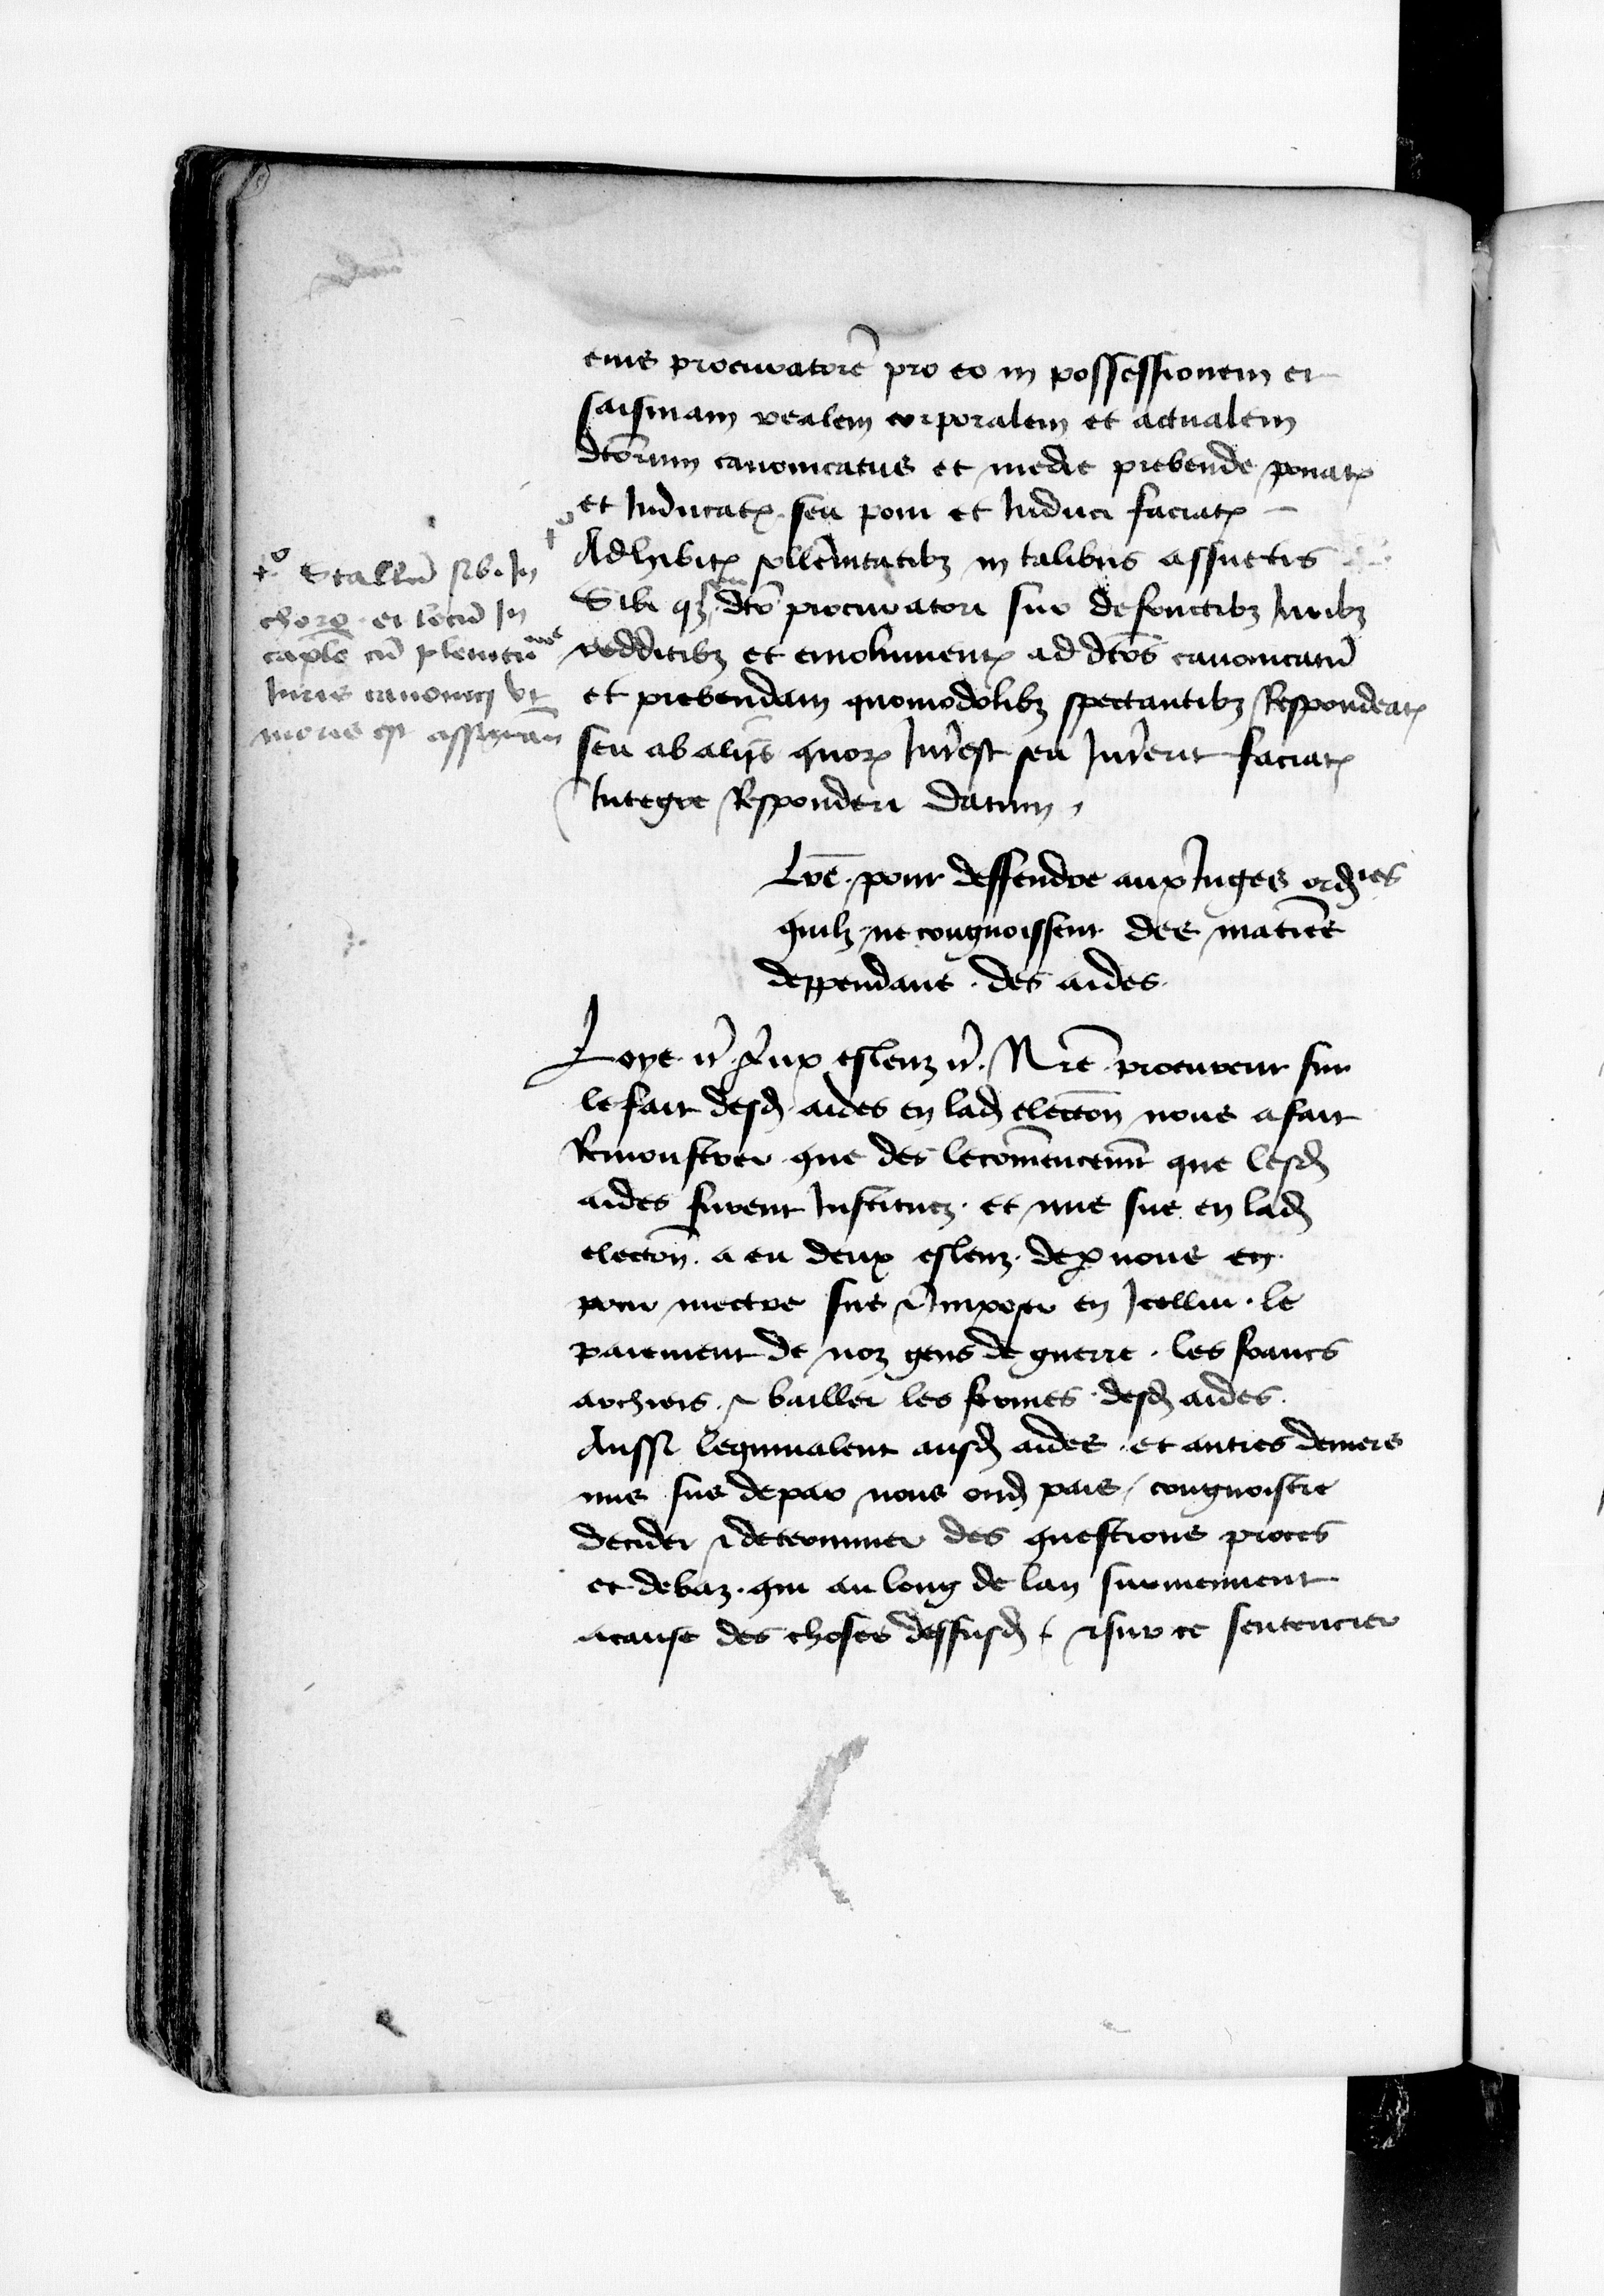 eius procuratorē pro eo in possessionem et
saisinam realem corporalem et actualem
dtōrum canonicatus et medie prebende ponatꝭ
et Inducatꝭ seu poni et Induci faciatꝭ
Adhibitꝭ sollēnitatibꝫ in talibus assuetis
Sibi qꝫ seu dtō procuratori suo de fructibꝫ Iuribꝫ
redditibꝫ et emolumentꝭ ad dtōs canonicatū
et prebendam quomodolibꝫ spectantibꝫ Respondeatꝭ
seu ab alijs quorꝭ Int̄est seu Int̄erit faciatꝭ
Integre Responderi Datum
†o Stallū sibi In
choro et locū In
caplō cū plenitudine
Iuris canonici vt
moris est assignan̄
Lrē pour deffendre aux Iuges ordres
quilz ne congnoissent des matiēs
deppendans des aides
Loys
eslenz
Nrē procureur sur
le fait desd aides en lad electōn nous a fait
Remonstrer que des le cōmencemēt que lesd
aides furent Instituez et mis sus en lad
electōn a eu deux esleuz de par nous
pour mectre sus & Imposer en Icellui le
paiement de noz gens de guerre les francs
archiers & bailler les fermes desd aides
Aussi lequivalent ausd aides et autres deniers
mis sus depar nous oud pais congnoistre
decider & determiner des questions proces
et debaz qui au long de lan surviennent
a cause des choses dessusd & sur ce sentencier